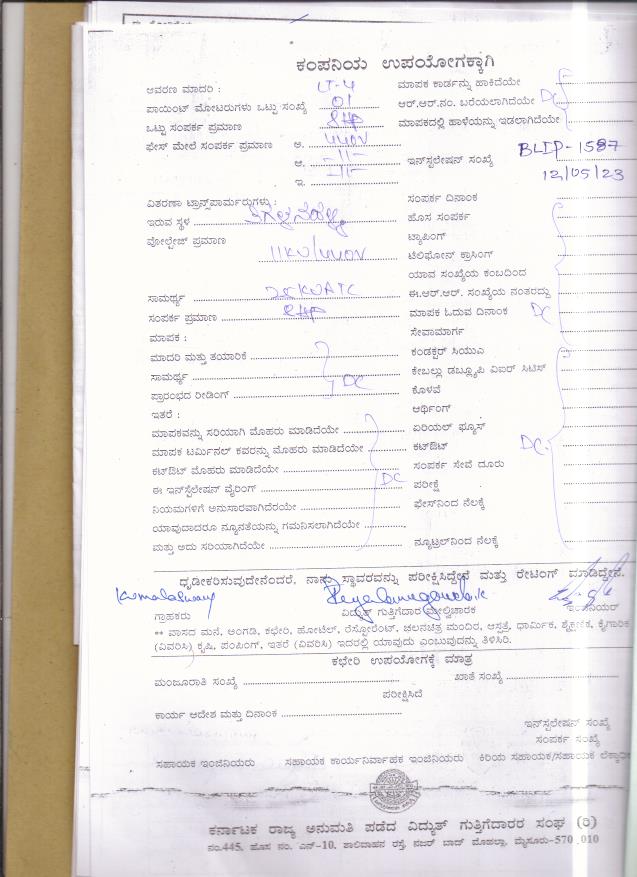 ಕಂಪನಿಯ ಉಪಯೋಗಕ್ಕಾಗಿ
ಆವರಣ ಮಾದರಿ : LT-4 ಮಾಪಕ ಕಾರ್ಡನ್ನು ಹಾಕಿದೆಯೇ
ಪಾಯಿಂಟ್ ಮೋಟರುಗಳು ಒಟ್ಟು ಸಂಖ್ಯೆ 01 ಆರ್.ಆರ್.ನಂ. ಬರೆಯಲಾಗಿದೆಯೇ DC
ಒಟ್ಟು ಸಂಪರ್ಕ ಪ್ರಮಾಣ 8HP ಮಾಪಕದಲ್ಲಿ ಹಾಳೆಯನ್ನು ಇಡಲಾಗಿದೆಯೇ
ಫೇಸ್ ಮೇಲೆ ಸಂಪರ್ಕ ಪ್ರಮಾಣ ಅ. 440V
ಆ. -11- ಇನ್‌ಸ್ಟಲೇಷನ್ ಸಂಖ್ಯೆ BLDP-1587
ಇ. -11- 12/05/23
ವಿತರಣಾ ಟ್ರಾನ್ಸ್‌ಪಾರ್ಮರುಗಳು : ಸಂಪರ್ಕ ದಿನಾಂಕ
ಇರುವ ಸ್ಥಳ ಹೊಸ ಸಂಪರ್ಕ
ವೋಲ್ಟೇಜ್ ಪ್ರಮಾಣ 11KV/440V ಟ್ಯಾಪಿಂಗ್
ಟೆಲಿಫೋನ್ ಕ್ರಾಸಿಂಗ್
ಯಾವ ಸಂಖ್ಯೆಯ ಕಂಬದಿಂದ
ಸಾಮರ್ಥ್ಯ 25KVA TC ಈ.ಆರ್.ಆರ್. ಸಂಖ್ಯೆಯ ನಂತರದ್ದು
ಸಂಪರ್ಕ ಪ್ರಮಾಣ 8HP ಮಾಪಕ ಓದುವ ದಿನಾಂಕ DC
ಮಾಪಕ : ಸೇವಾಮಾರ್ಗ
ಮಾದರಿ ಮತ್ತು ತಯಾರಿಕೆ ಕಂಡಕ್ಟರ್ ಸಿಯುಎ
ಸಾಮರ್ಥ್ಯ DC ಕೇಬಲ್ಲು ಡಬ್ಲ್ಯೂಪಿ ವಿಐರ್ ಸಿಟಿಸ್
ಪ್ರಾರಂಭದ ರೀಡಿಂಗ್ ಕೊಳವೆ
ಇತರೆ : ಆರ್ಥಿಂಗ್
ಮಾಪಕವನ್ನು ಸರಿಯಾಗಿ ಮೊಹರು ಮಾಡಿದೆಯೇ ಏರಿಯಲ್ ಫ್ಯೂಸ್
ಮಾಪಕ ಟರ್ಮಿನಲ್ ಕವರನ್ನು ಮೊಹರು ಮಾಡಿದೆಯೇ ಕಟ್‌ಔಟ್ DC
ಕಟ್‌ಔಟ್ ಮೊಹರು ಮಾಡಿದೆಯೇ ಸಂಪರ್ಕ ಸೇವೆ ದೂರು
ಈ ಇನ್‌ಸ್ಟಲೇಷನ್ ವೈರಿಂಗ್ DC ಪರೀಕ್ಷೆ
ನಿಯಮಗಳಿಗೆ ಅನುಸಾರವಾಗಿದೆರೆಯೇ ಫೇಸ್‌ನಿಂದ ನೆಲಕ್ಕೆ
ಯಾವುದಾದರೂ ನ್ಯೂನತೆಯನ್ನು ಗಮನಿಸಲಾಗಿದೆಯೇ
ಮತ್ತು ಅದು ಸರಿಯಾಗಿದೆಯೇ ನ್ಯೂಟ್ರಲ್‌ನಿಂದ ನೆಲಕ್ಕೆ
ಧೃಡೀಕರಿಸುವುದೇನೆಂದರೆ, ನಾನು ಸ್ಥಾವರವನ್ನು ಪರೀಕ್ಷಿಸಿದ್ದೇನೆ ಮತ್ತು ರೇಟಿಂಗ್ ಮಾಡಿದ್ದೇನೆ.
ಗ್ರಾಹಕರು ವಿದ್ಯುತ್ ಗುತ್ತಿಗೆದಾರ ಮೇಲ್ವಿಚಾರಕ ಇಂಜಿನಿಯರ್
** ವಾಸದ ಮನೆ, ಅಂಗಡಿ, ಕಛೇರಿ, ಹೋಟೆಲ್, ರೆಸ್ಟೋರೆಂಟ್, ಚಲನಚಿತ್ರ ಮಂದಿರ, ಆಸ್ಪತ್ರೆ, ಧಾರ್ಮಿಕ, ಶೈಕ್ಷಣಿಕ, ಕೈಗಾರಿಕ
(ವಿವರಿಸಿ) ಕೃಷಿ, ಪಂಪಿಂಗ್, ಇತರೆ (ವಿವರಿಸಿ) ಇದರಲ್ಲಿ ಯಾವುದು ಎಂಬುವುದನ್ನು ತಿಳಿಸಿರಿ.
ಕಛೇರಿ ಉಪಯೋಗಕ್ಕೆ ಮಾತ್ರ
ಮಂಜೂರಾತಿ ಸಂಖ್ಯೆ ಖಾತೆ ಸಂಖ್ಯೆ
ಪರೀಕ್ಷಿಸಿದೆ
ಕಾರ್ಯ ಆದೇಶ ಮತ್ತು ದಿನಾಂಕ
ಇನ್‌ಸ್ಟಲೇಷನ್ ಸಂಖ್ಯೆ
ಸಂಪರ್ಕ ಸಂಖ್ಯೆ
ಸಹಾಯಕ ಇಂಜಿನಿಯರು ಸಹಾಯಕ ಕಾರ್ಯನಿರ್ವಾಹಕ ಇಂಜಿನಿಯರು ಕಿರಿಯ ಸಹಾಯಕ/ಸಹಾಯಕ
ಕರ್ನಾಟಕ ರಾಜ್ಯ ಅನುಮತಿ ಪಡೆದ ವಿದ್ಯುತ್ ಗುತ್ತಿಗೆದಾರರ ಸಂಘ (ರಿ)
ನಂ.445, ಹೊಸ ನಂ. ಎನ್-10, ಶಾಲಿವಾಹನ ರಸ್ತೆ, ನಜರ್ ಬಾದ್ ಮೊಹಲ್ಲಾ, ಮೈಸೂರು-570 010